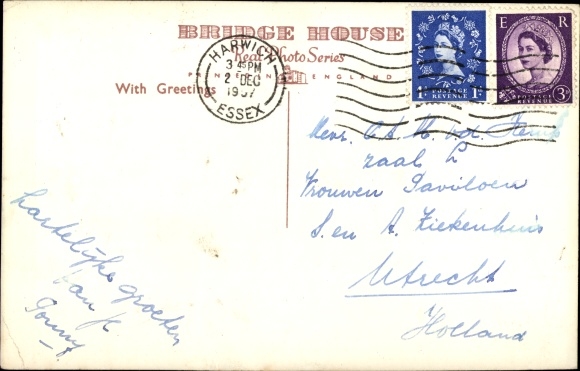 BRIDGE HOUSE
Real Photo Series
ENGLAND
With Greetings
HARWICH
3 45 PM
2 DEC
1957
ESSEX
POSTAGE
REVENUE
1D 1D
E R
POSTAGE
REVENUE
3D
Mevr.
zaal
Vrouwen Paviloen
S. en A. Ziekenhuis
Utrecht
Holland
hartelijke groeten
van je